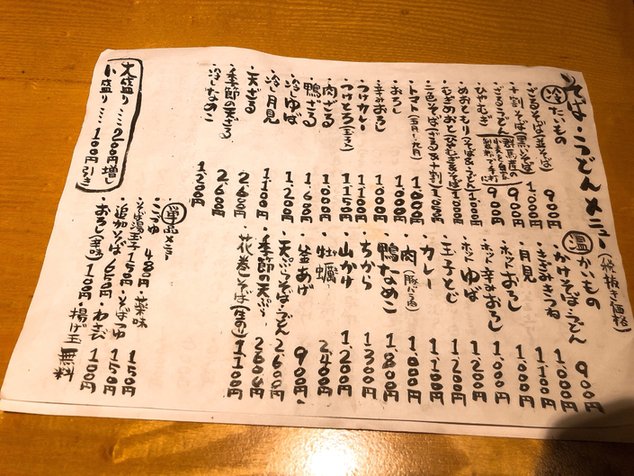 そば・うどんメニュー
(税抜き価格)
冷たいもの
・ざるそば(並そば) 900円
・十割そば(黒いそば) 1000円
・ざるうどん 900円
・ひやむぎ 900円
・めおともり(そばうどん) 1000円
・むぎめおと(ひやむぎそば) 1000円
・二色そば(ざる&十割) 1050円
・トマト
・おろし 1000円
・辛みおろし 1000円
・つけカレー 1100円
・つけとろ 1150円
・肉ざる 1000円
・鴨ざる 1600円
・冷しゆば 1200円
・冷し月見 1100円
・天ざる 2600円
・季節の天ざる 2600円
・冷しなめこ 1200円
温かいもの
・かけそば・うどん 900円
・きざみきつね 1000円
・月見 1100円
・ホットおろし 1000円
・ホット辛みおろし 1000円
・ゆば 1200円
・玉子とじ 1200円
・カレー 1100円
・肉 1000円
・鴨なめこ 1800円
・ちから 1300円
・山かけ 1200円
・牡蠣 2400円
・釜あげ 900円
・天ぷらそば・うどん 2600円
・季節の天ぷら 2600円
・花巻そば 1100円
単品メニュー
・そば湯玉子 150円
・追加そば 650円
・おろし 100円
薬味
・そばつゆ 150円
・わさび 100円
揚げ玉 無料
大盛り…200円増し
小盛り…100円引き